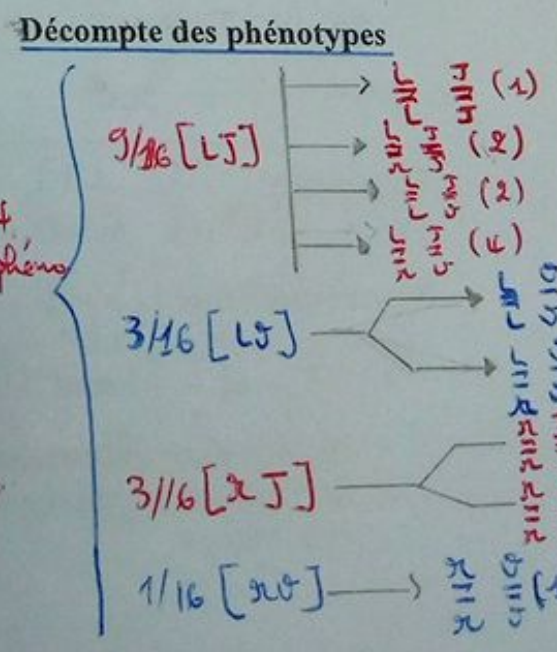 Décompte des phénotypes
9/16 [LJ]
L//L J//J (1)
L//r J//J (2)
L//L J//v (2)
L//r J//v (4)
4
phéno
3/16 [Lv]
L//L
L//r
3/16 [rJ]
r//r
r//r
1/16 [rv]
r//r v//v (1